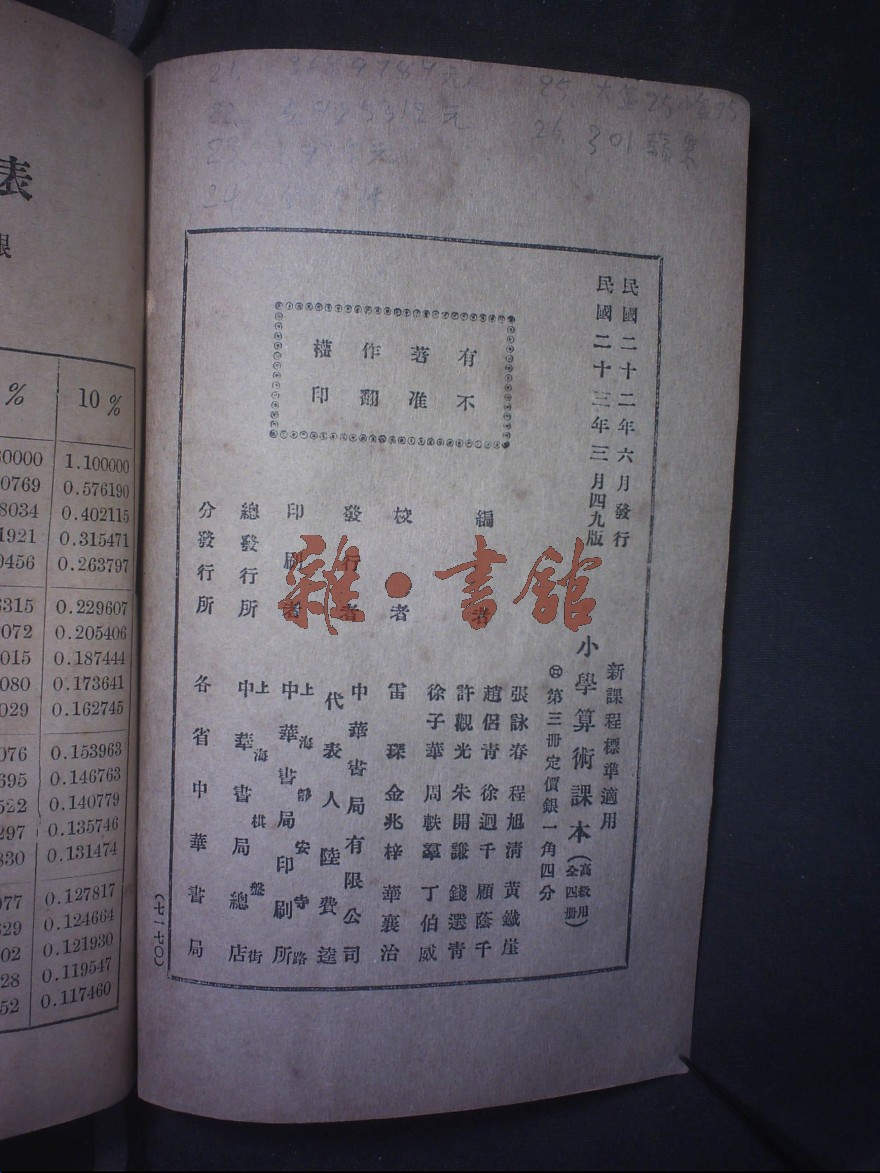 表
%
10 %
1.100000
0769 0.576190
8034 0.402115
1921 0.315471
9456 0.263797
6315 0.229607
2072 0.205406
015 0.187444
080 0.173641
029 0.162745
076 0.153963
695 0.146763
522 0.140779
297 0.135746
330 0.131474
077 0.127817
629 0.124664
02 0.121930
28 0.119547
52 0.117460
25. 大
26. 301 蘋果
民國二十二年六月發行
民國二十三年三月四九版
有著作權
不准翻印
新課程標準適用
小學算術課本(高級用全四冊)
第三冊定價銀一角四分
編者
張詠春 程旭清 黃鐵崖
趙侶青 徐迥千 顧蔭千
許觀光 朱開謙 錢選青
徐子華 周軼羣 丁伯威
校者
雷琛 金兆梓 華襄治
發行者
中華書局有限公司
代表人 陸費逵
印刷者
上海靜安寺路
中華書局印刷所
總發行所
上海棋盤街
中華書局總店
分發行所
各省中華書局
雜·書館